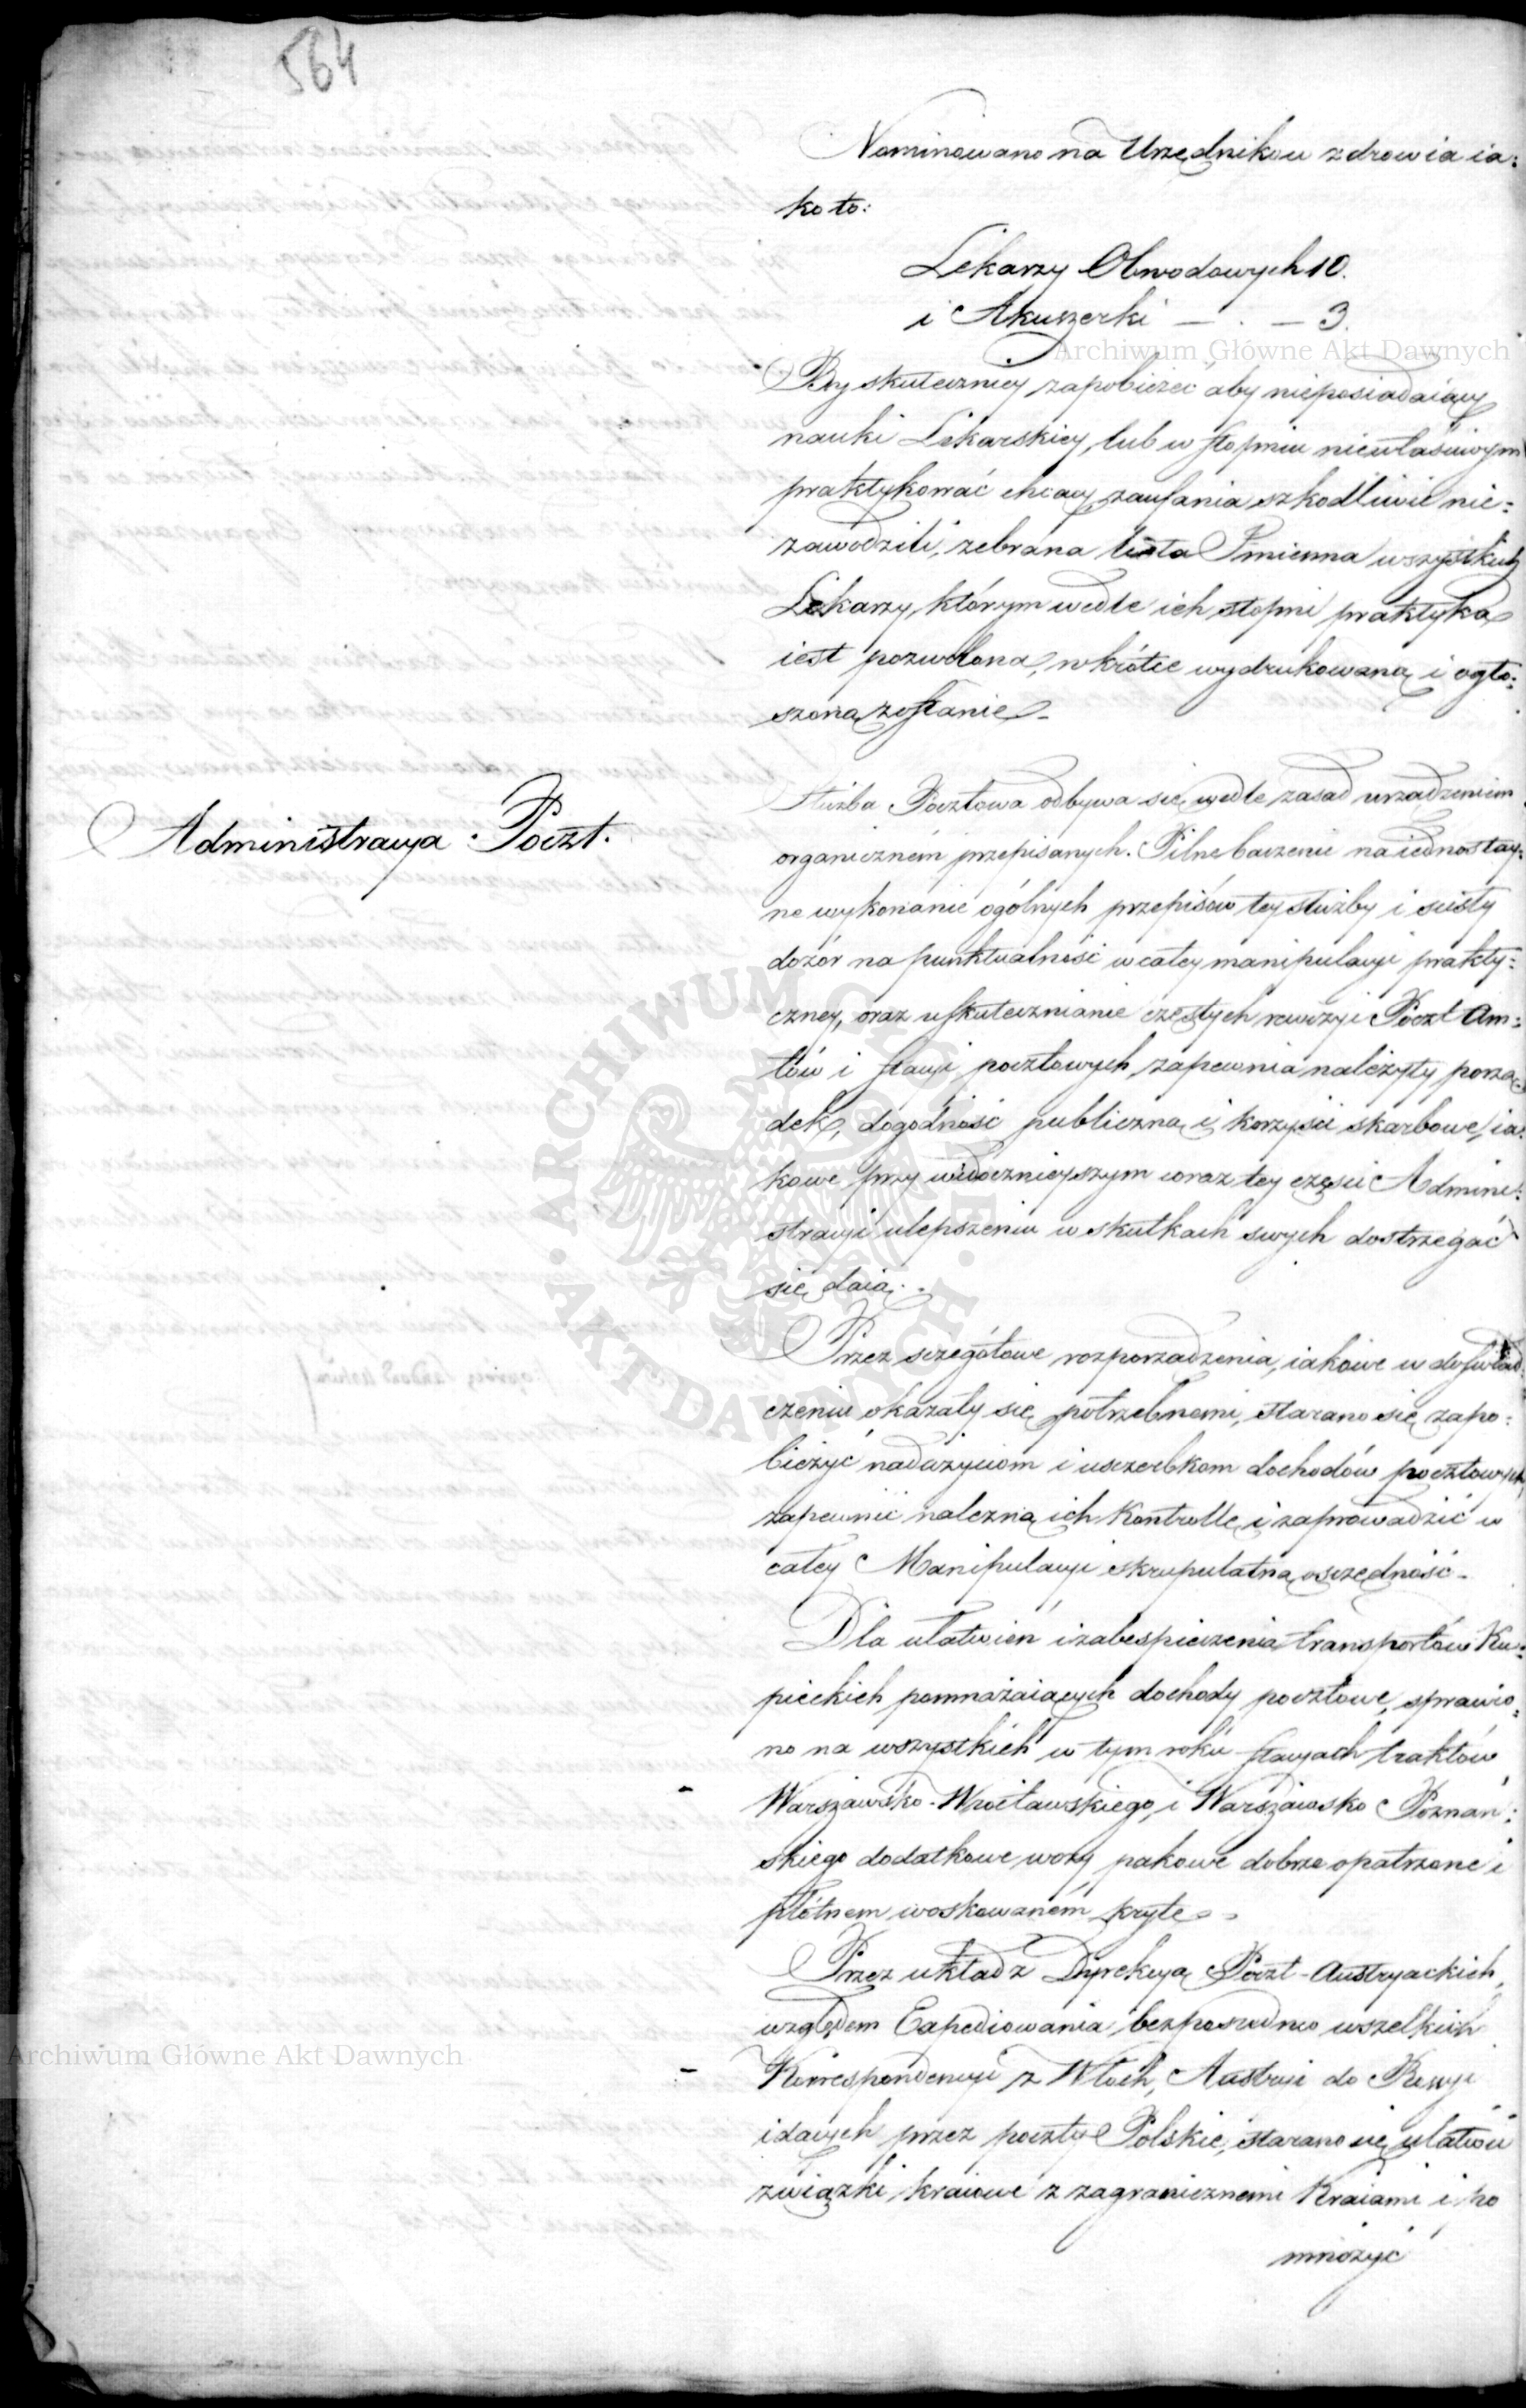 564
Nominowano na Urzędników zdrowia ia=
ko to:
Lekarzy Obwodowych 10.
i Akuszerki — . — 3.
Archiwum Główne Akt Dawnych
By skuteczniey zapobieżeć aby nieposiadaiący
nauki Lekarskiey, lub w stopniu niewłaściwym
praktykować chcący, zaufania szkodliwie nie=
zawodzili, zebrana lista Imienna wszystkich
Lekarzy, którym wedle ich stopni praktyka
iest pozwolona, wkrótce wydrukowaną i ogło=
szoną zostanie.
Administracya Poczt.
Służba Pocztowa odbywa się wedle zasad urządzeniem
organiczném przepisanych. Pilne baczenie na iednostay=
ne wykonanie ogólnych przepisów tey służby i ścisły
dozór na punktualność w całey manipulacyi prakty=
czney, oraz uskutecznianie częstych rewizyi Poczt Am=
tów i stacyi pocztowych, zapewnia należyty porzą=
dek, dogodność publiczną i korzyści skarbowe, ia=
kowe przy widocznieyszym coraz tey części Admini=
stracyi ulepszeniu w skutkach swych dostrzegać
się daią.
Przez szczegółowe rozporządzenia, iakowe w doświad=
czeniu okazały się potrzebnemi, starano się zapo=
bieżyć nadużyciom i uszczerbkom dochodów pocztowych,
zapewnić należną ich Kontrollę i zaprowadzić w
całey Manipulacyi skrupulatną oszczędność.
Dla ułatwień i zabespieczenia transportów Ku=
pieckich pomnażaiących dochody pocztowe, sprawio=
no na wszystkich w tym roku stacyach traktów
Warszawsko-Wrocławskiego, i Warszawsko Poznań=
skiego dodatkowe wozy pakowe dobrze opatrzone i
płótnem woskowaném kryte.
Przez układ z Dyrekcyą Poczt-Austryackich,
względem Expediowania bezpośrednio wszelkich
Korrespondencyi z Włoch, Austryi do Rossyi
idących przez poczty Polskie, starano się ułatwić
związki kraiowe z zagranicznemi Kraiami i po
mnożyć
Archiwum Główne Akt Dawnych
ARCHIWUM GŁÓWNE AKT DAWNYCH